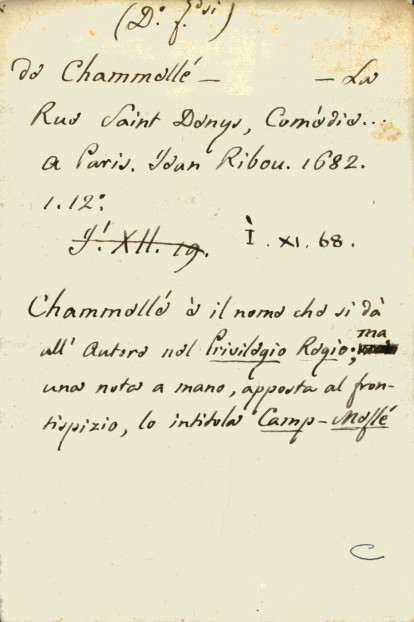 (D.º f.ºsi)
de Chammellé — — La
Rue Saint Denys, Comédie...
a Paris. Jean Ribou. 1682.
1. 12º
I. XII. 19. Ì. XI. 68.
Chammellé è il nome che si dà
all' Autore nel Privilegio Regio; ma
una nota a mano, apposta al fron-
tispizio, lo intitola Camp-Meslé
C